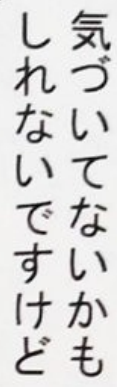 気づいてないかも
しれないですけど